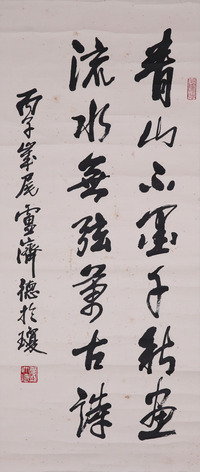 青山不墨千秋画
流水無弦萬古詩
丙子歲尾雷濟德於瓊